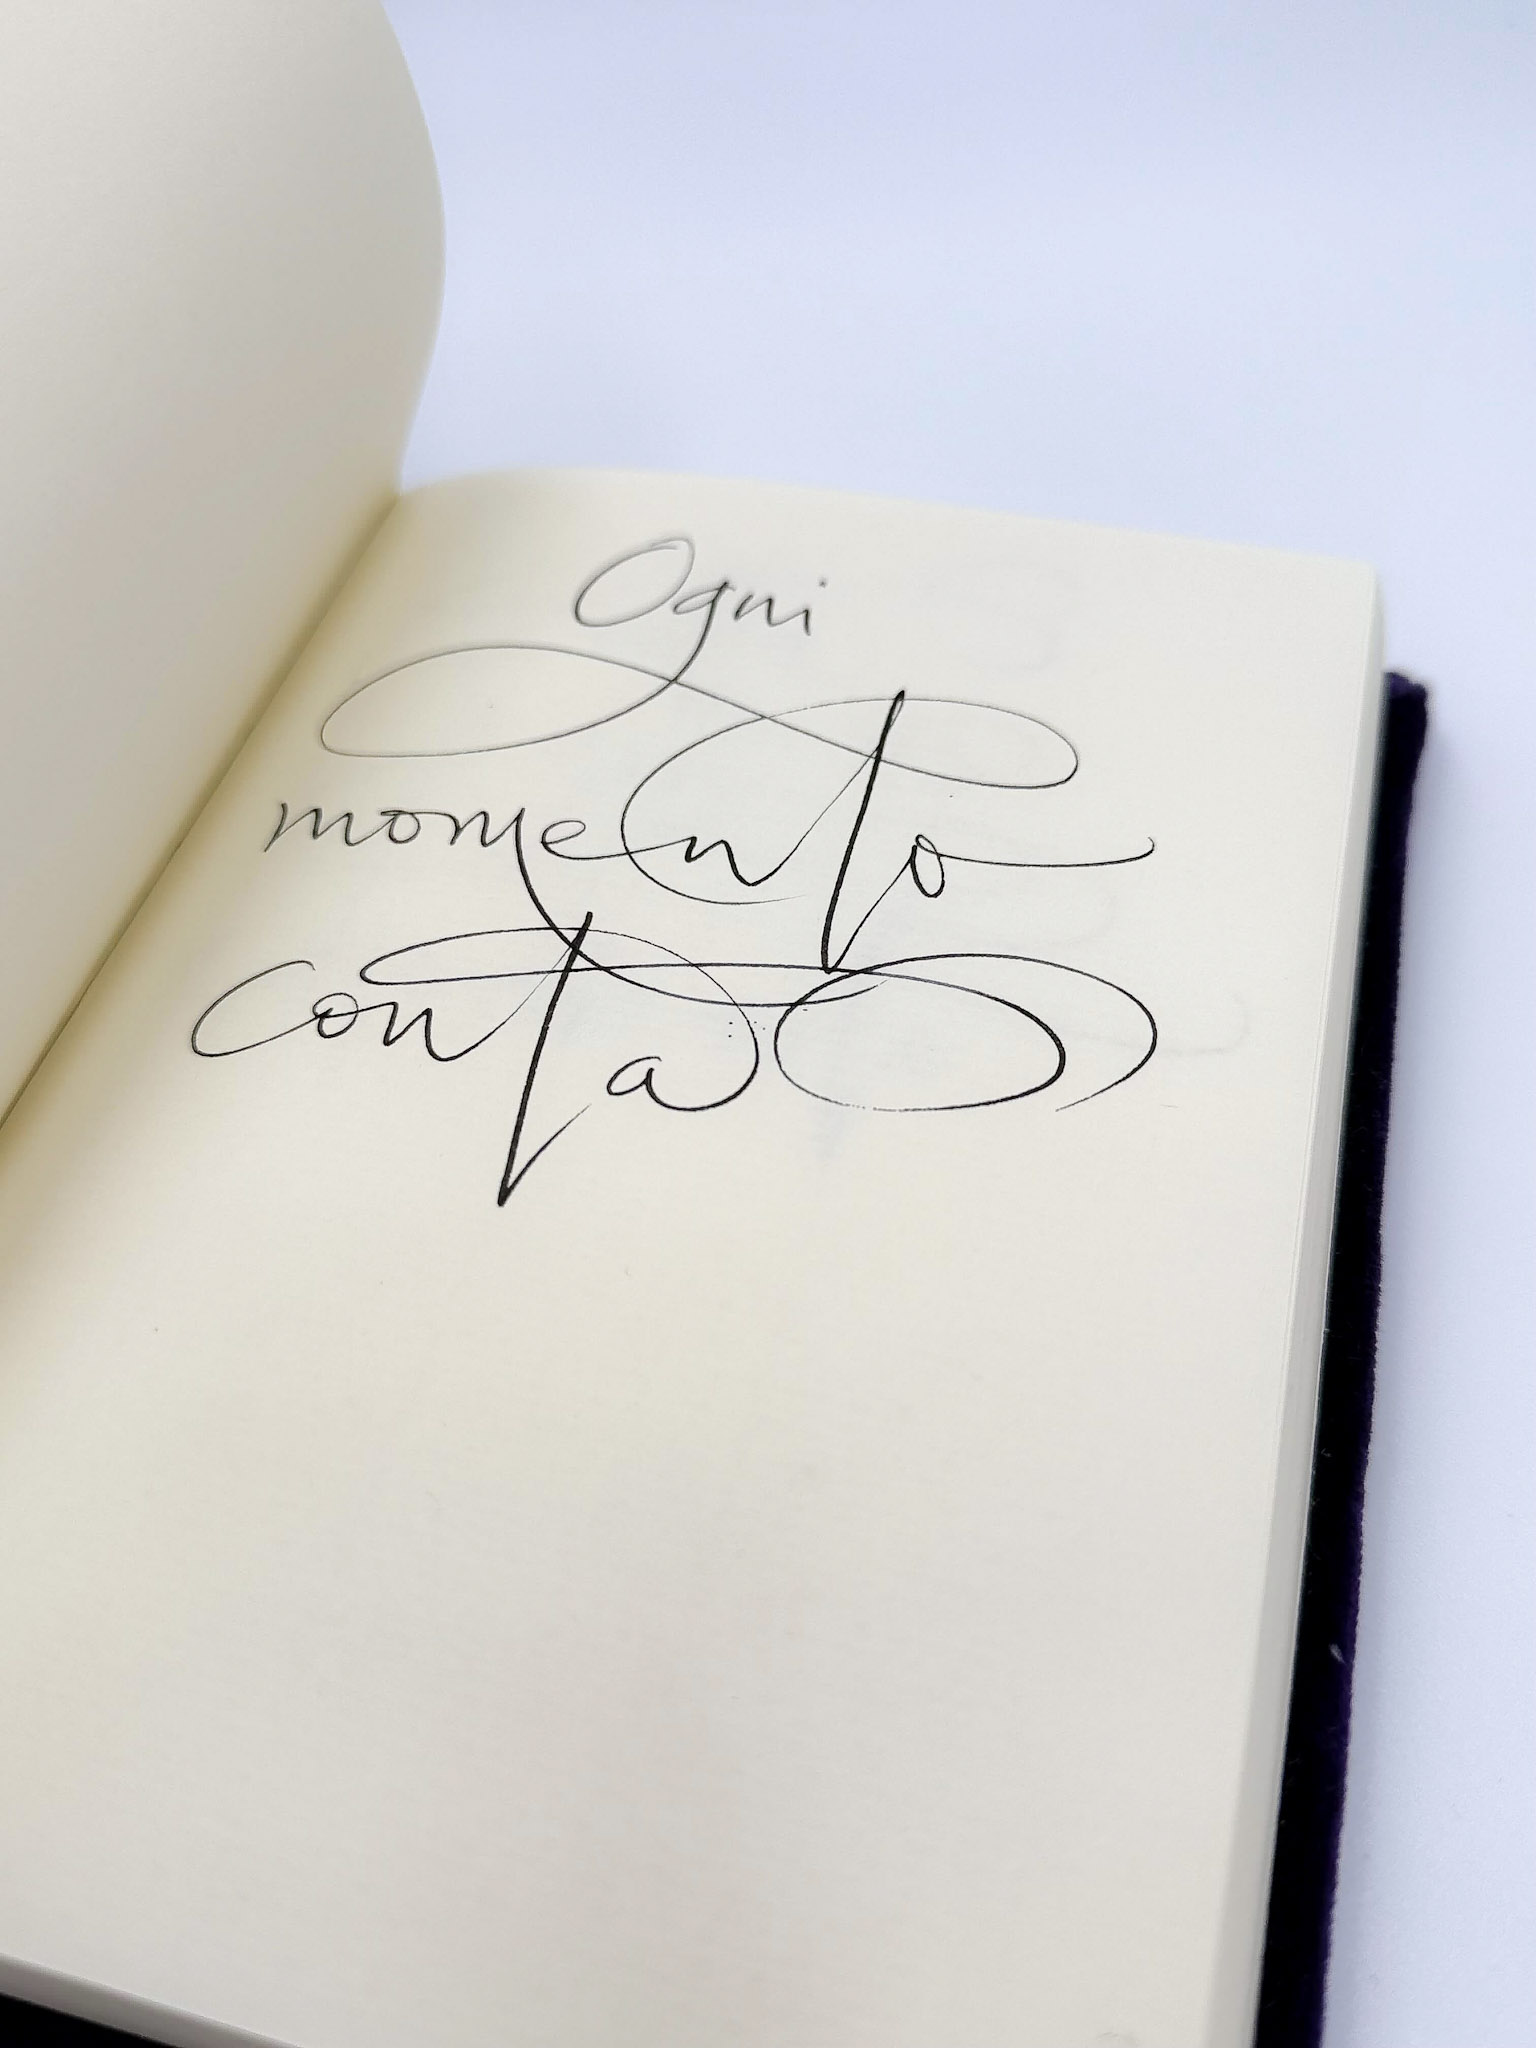 Ogni
momento
conta